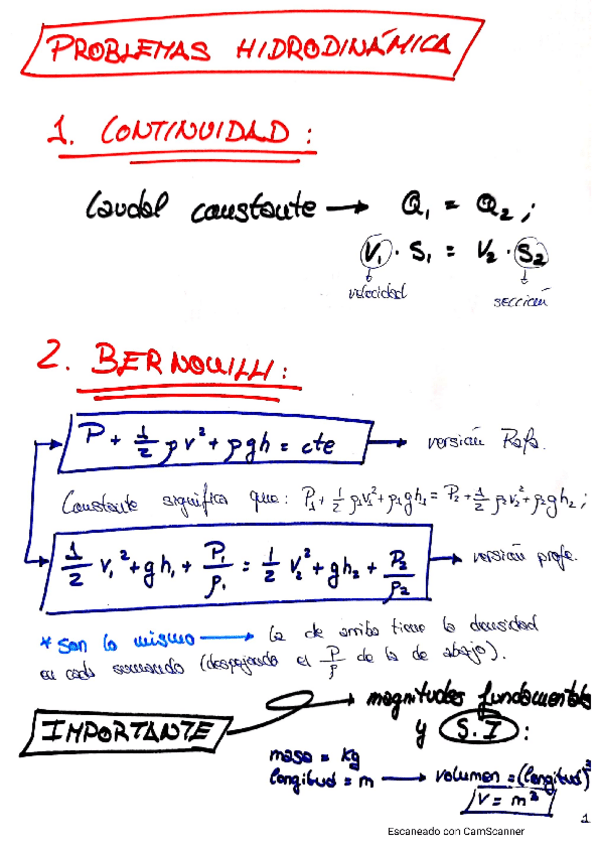 PROBLEMAS HIDRODINÁMICA
1. CONTINUIDAD:
Caudal constante → Q₁ = Q₂;
V₁ · S₁ = V₂ · S₂
velocidad sección
2. BERNOUILLI:
P + 1/2 ρv² + ρgh = cte → versión Rafa.
Constante significa que: P₁ + 1/2 ρ₁v₁² + ρ₁gh₁ = P₂ + 1/2 ρ₂v₂² + ρ₂gh₂;
1/2 v₁² + gh₁ + P₁/ρ₁ = 1/2 v₂² + gh₂ + P₂/ρ₂ → versión profe.
* Son lo mismo → la de arriba tiene la densidad
en cada sumando (despejando el P/ρ de la de abajo).
IMPORTANTE → magnitudes fundamentales
y S.I:
masa = kg
longitud = m → volumen = (longitud)³
V = m³
1
Escaneado con CamScanner